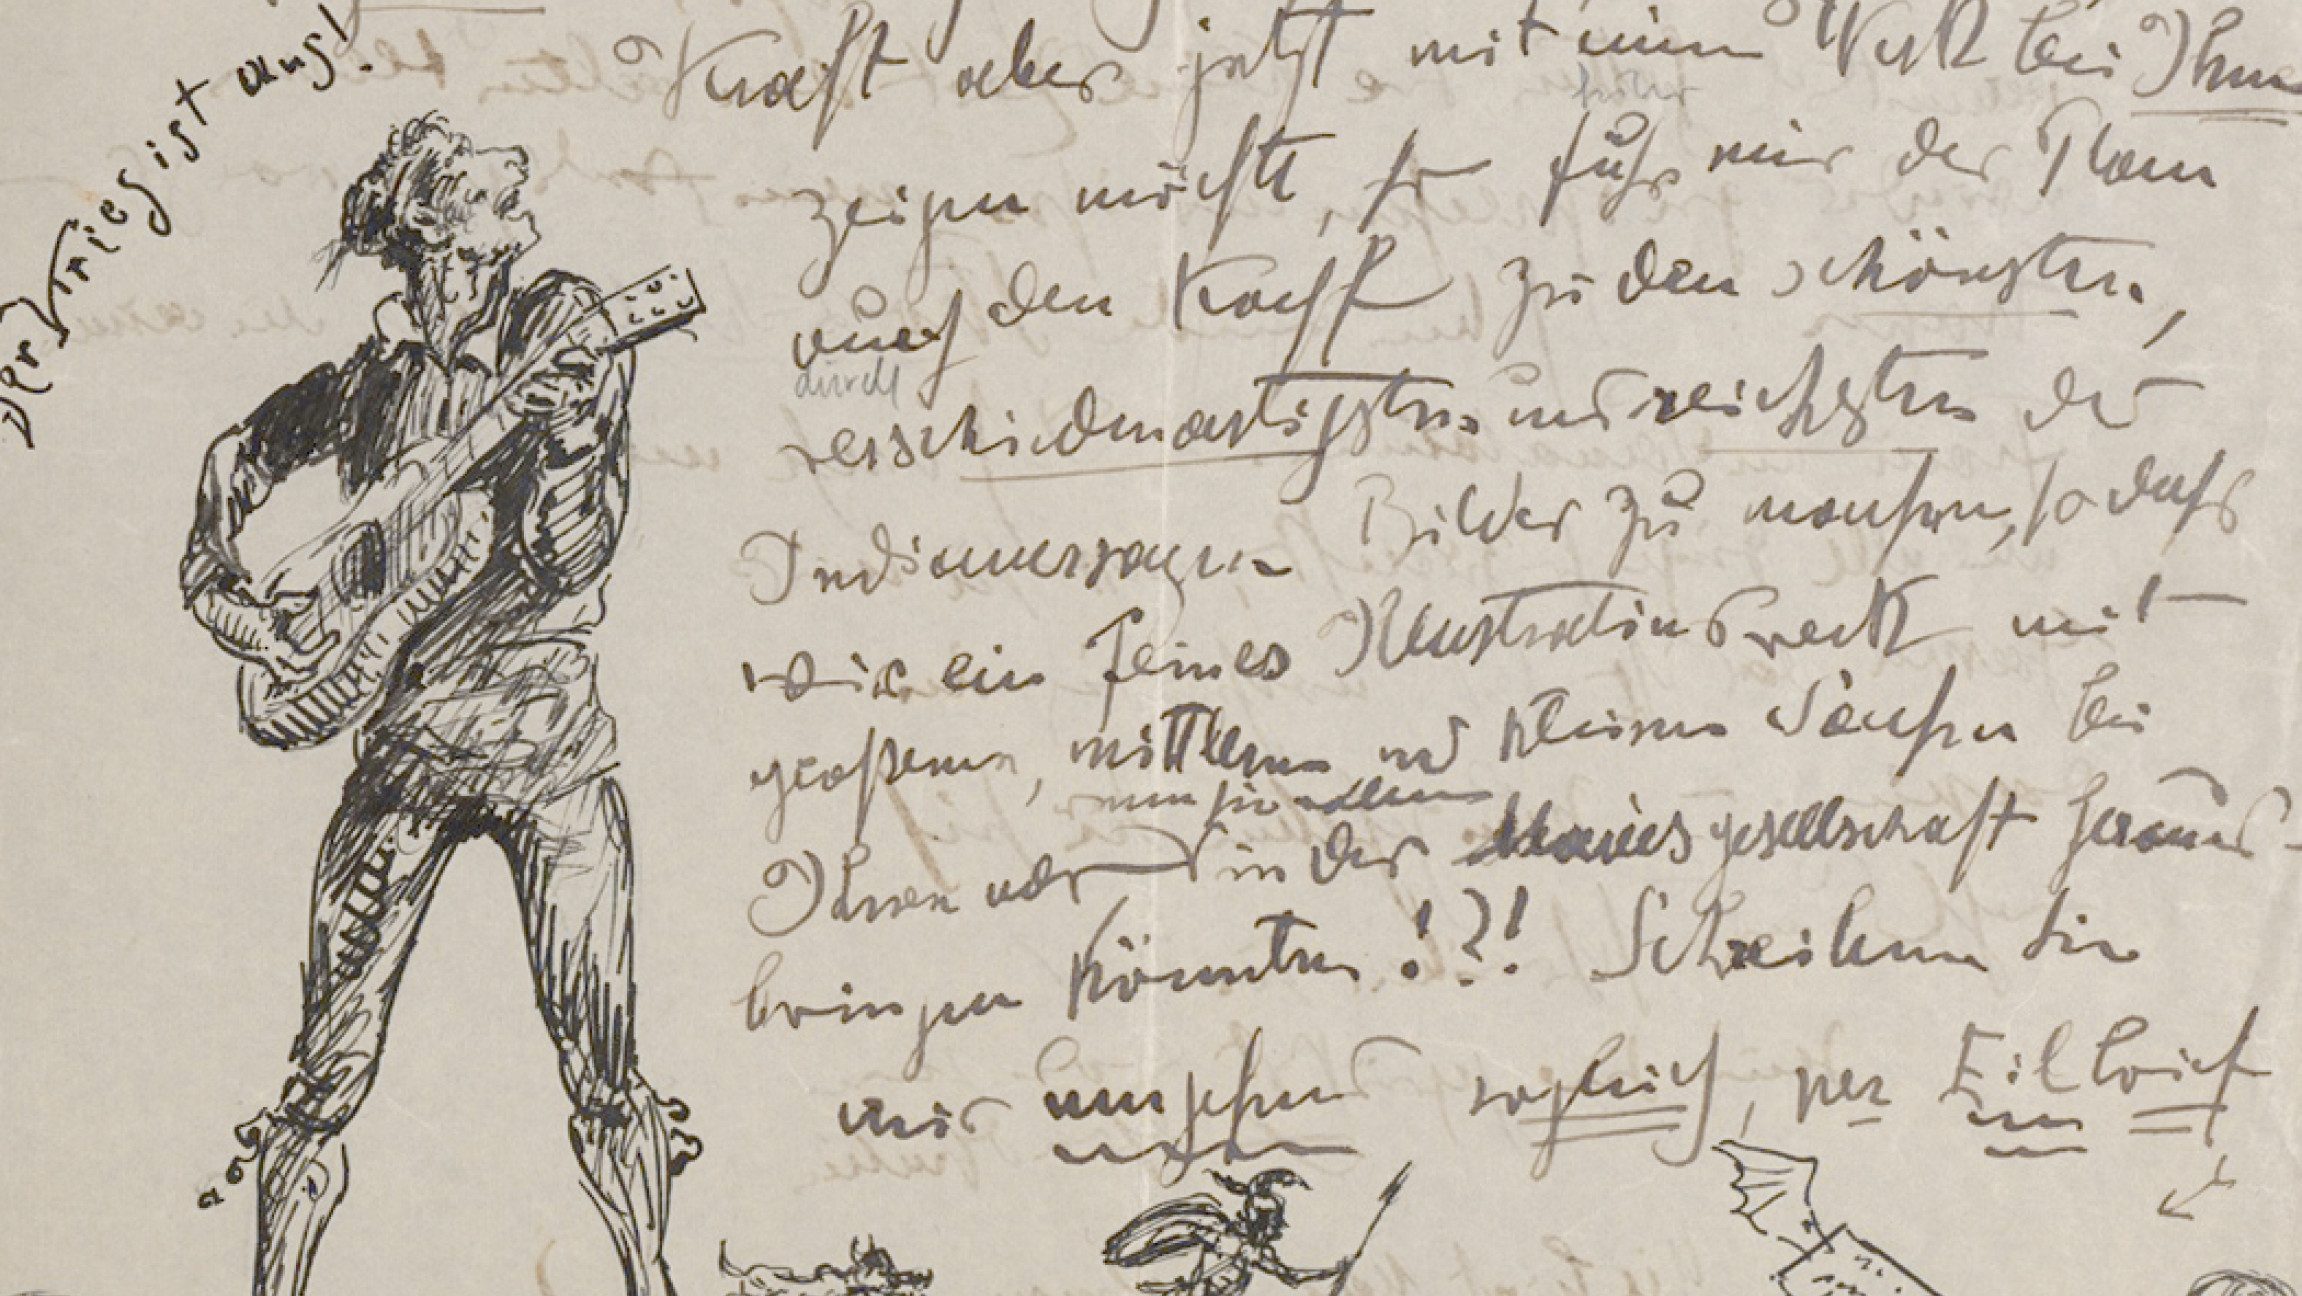 Der Krieg ist aus!
Kraft aber jetzt mit einem Werk bei Ihnen
früher
zeigen möchte, so fuhr mir der Plan
durch
auch den Kopf zu den schönsten,
verschiedenartigsten und reichsten der
Indianersagen Bilder zu machen, so daß
wir ein feines Illustrationswerk mit
großem, mittlern und kleinen Sachen bei
Ihnen oder in der gesellschaft heraus-
bringen könnten!?! Schreiben Sie
mir umgehend sogleich, per Eilbrief